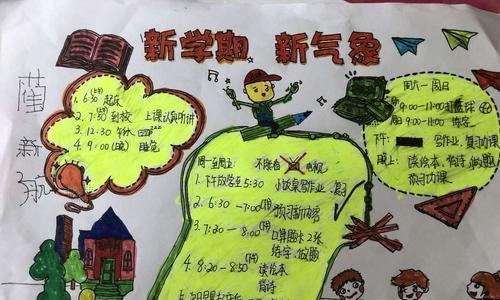 新学期 新气象
新
航
1. 6:30 起床
2. 7:30 到校 上课认真听讲
3. 12:30 午休
4. 9:00(晚) 睡觉
周六—周日
9:00-11:00
9:00-10:00 练字
下午: 写作业,复习功课
晚上: 读绘本,背诗,做题
预习功课
周一至周五: 不准看电视
1. 下午放学至5:30 小饭桌写作业,复习
2. 6:30-7:00 预习新内容
3. 7:30-8:00 口算题卡2张
练字,做题
4. 8:20-8:50 读绘本
背诗